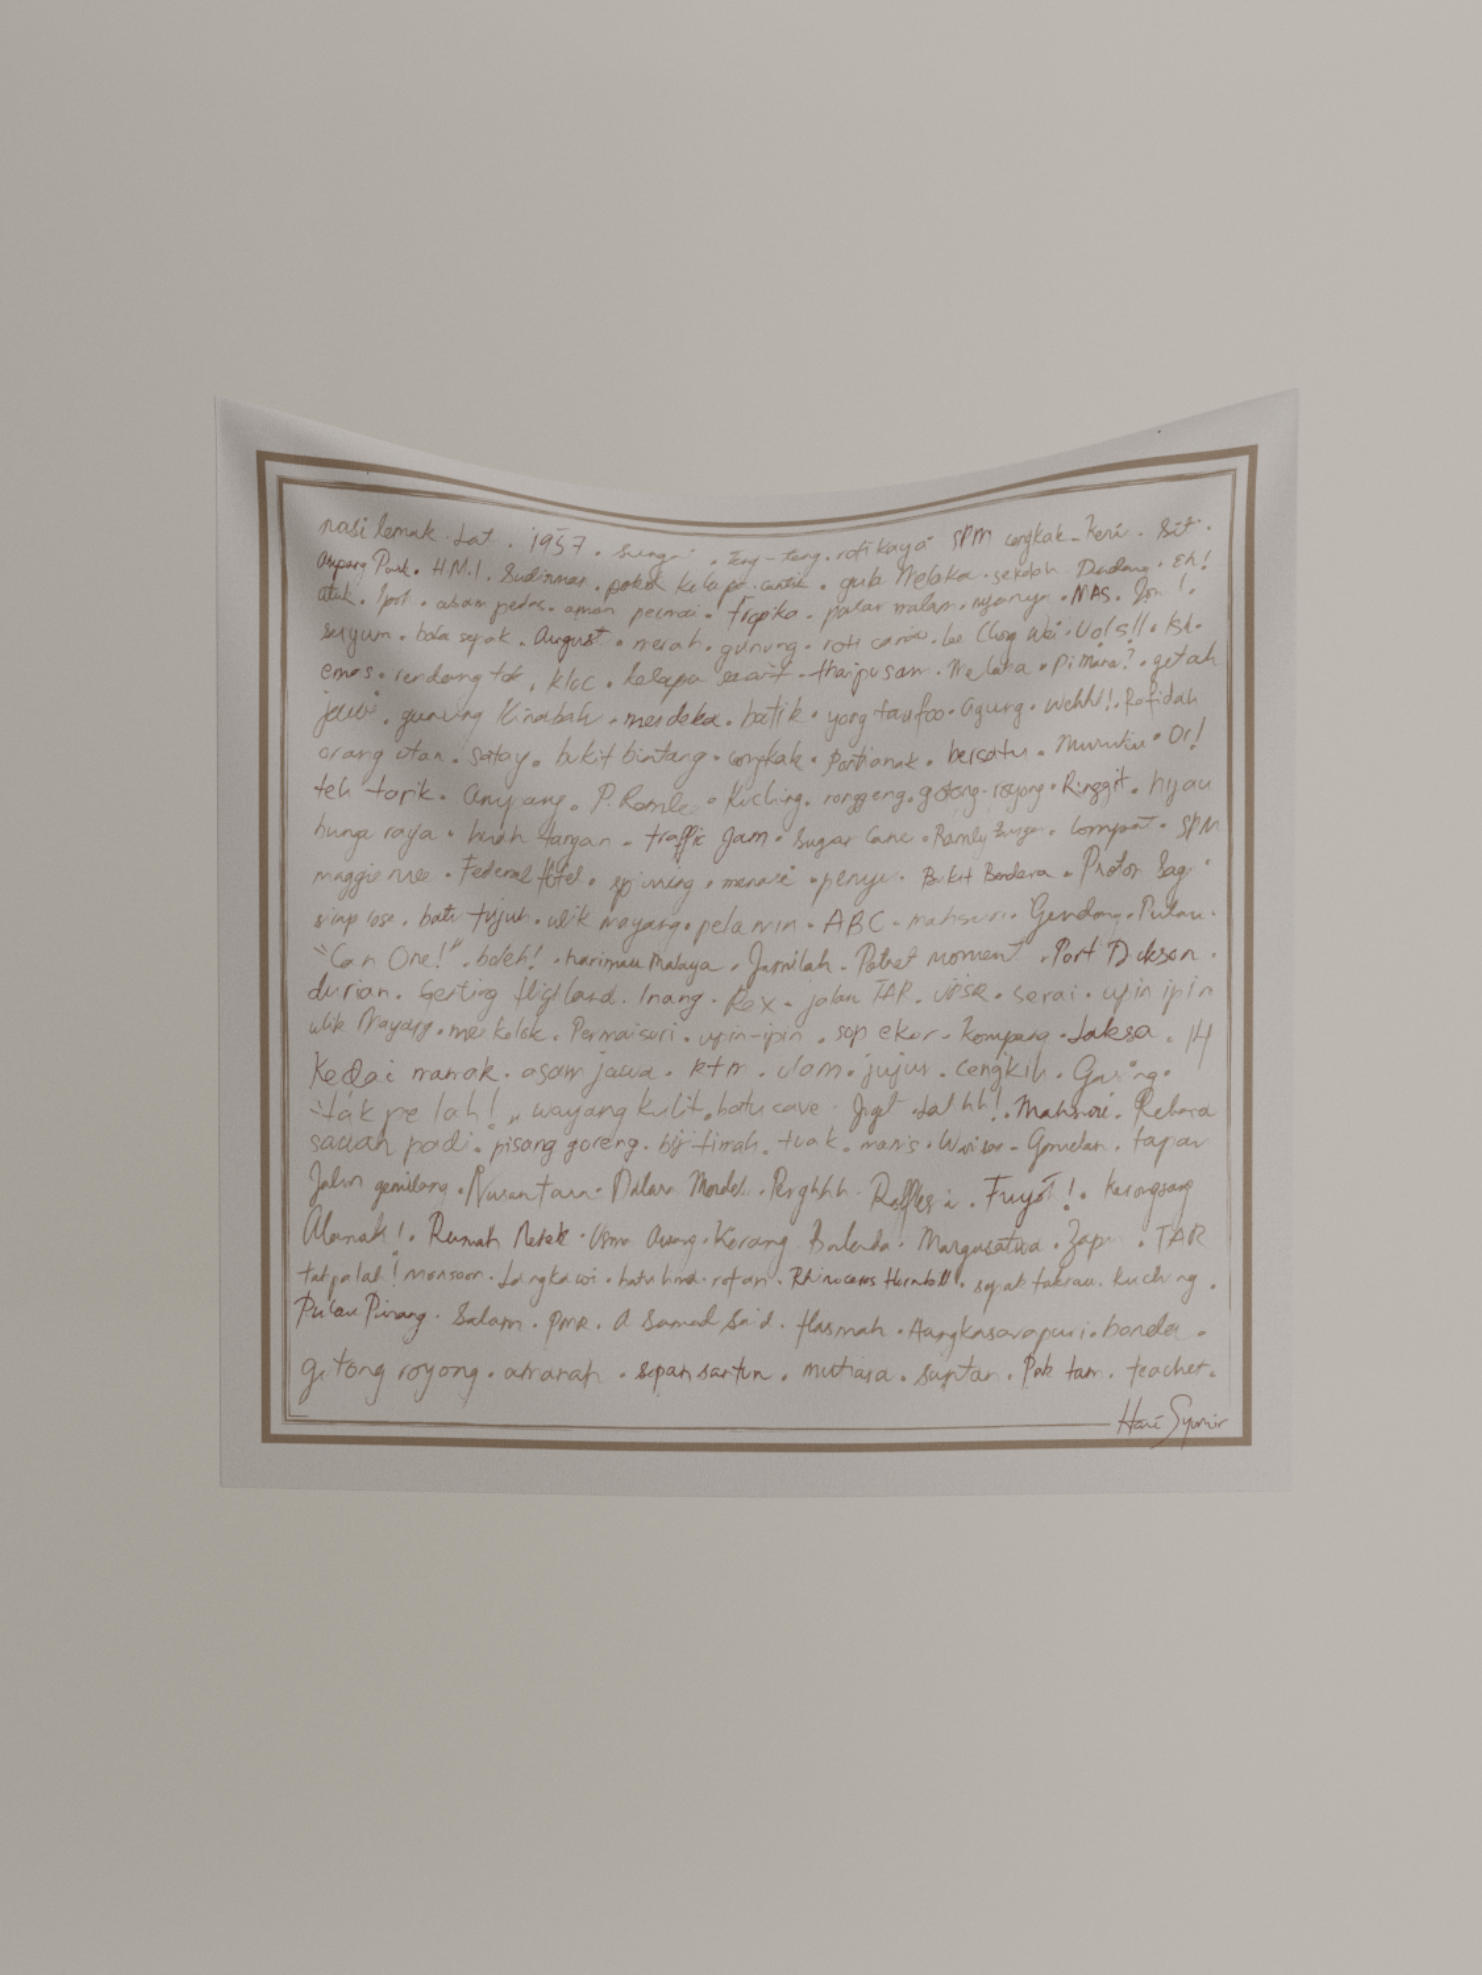 nasi lemak . Lat . 1957 . . Teng-teng . roti kaya SPM congkak . Keri . Siti .
Ampang Park . H.M.I . Sudirman . pokok kelapa . cantik . gula Melaka . sekolah Dadang . Eh!
atuk . Ipoh . asam pedas . aman permai . tropika . pasar malam . nyonya . MAS . Jom! .
senyum . bola sepak . August . merah . gunung . roti canai . Lee Chong Wei . Vols!! . Ish .
emas . rendang tok . KLCC . kelapa sawit . thaipusam . Melaka . Pi Mana? . getah
jawi . gunung Kinabalu . merdeka . batik . yong taufoo . Agung . Wehh!! . Rafidah
orang utan . satay . bukit bintang . congkak . Pontianak . bersatu . Muruku . Oi!
teh tarik . anyang . P. Ramlee . Kuching . ronggeng . gotong-royong . Ringgit . hijau
bunga raya . buah tangan . traffic jam . Sugar Cane . Ramly Burger . Lompat . SPM
maggie mee . Federal Hotel . spinning . menara . penyu . Bukit Bendera . Proton Saga .
sirap rose . batu tujuh . ulik mayang . pelamin . ABC . mahsuri . Gendang . Pulau .
"Can One!" . boleh! . harimau Malaya . Jamilah . Potret moment . Port Dickson .
durian . Genting Highland . Inang . Rex . jalan TAR . UPSR . serai . upin ipin
ulik Mayang . mee kolok . Permaisuri . upin-ipin . sop ekor . Kompang . Laksa . 14
Kedai mamak . asam jawa . ktm . ulam . jujur . cengkih . Gasing .
"tak pe lah!" wayang kulit . batu cave . Joget . Lahhh! . Mahsuri . Rebana
sawah padi . pisang goreng . bijih timah . tuak . manis . Wawasan . Gamelan . tapau
Jalur gemilang . Nusantara . Dataran Merdeka . Perghhh . Rafflesia . Fuyoo! . Kerongsang
Alamak! . Rumah Merah . Usman Awang . Kerang . Belanda . Margasatwa . Zapin . TAR
tak pa lah! monsoon . Langkawi . batu lima . rotan . Rhinoceros Hornbill . sepak takraw . kuching .
Pulau Pinang . Salam . PMR . A Samad Said . Hasmah . Angkasarapuri . bonda .
gotong royong . amanah . sopan santun . mutiara . santan . Pak tam . teacher .